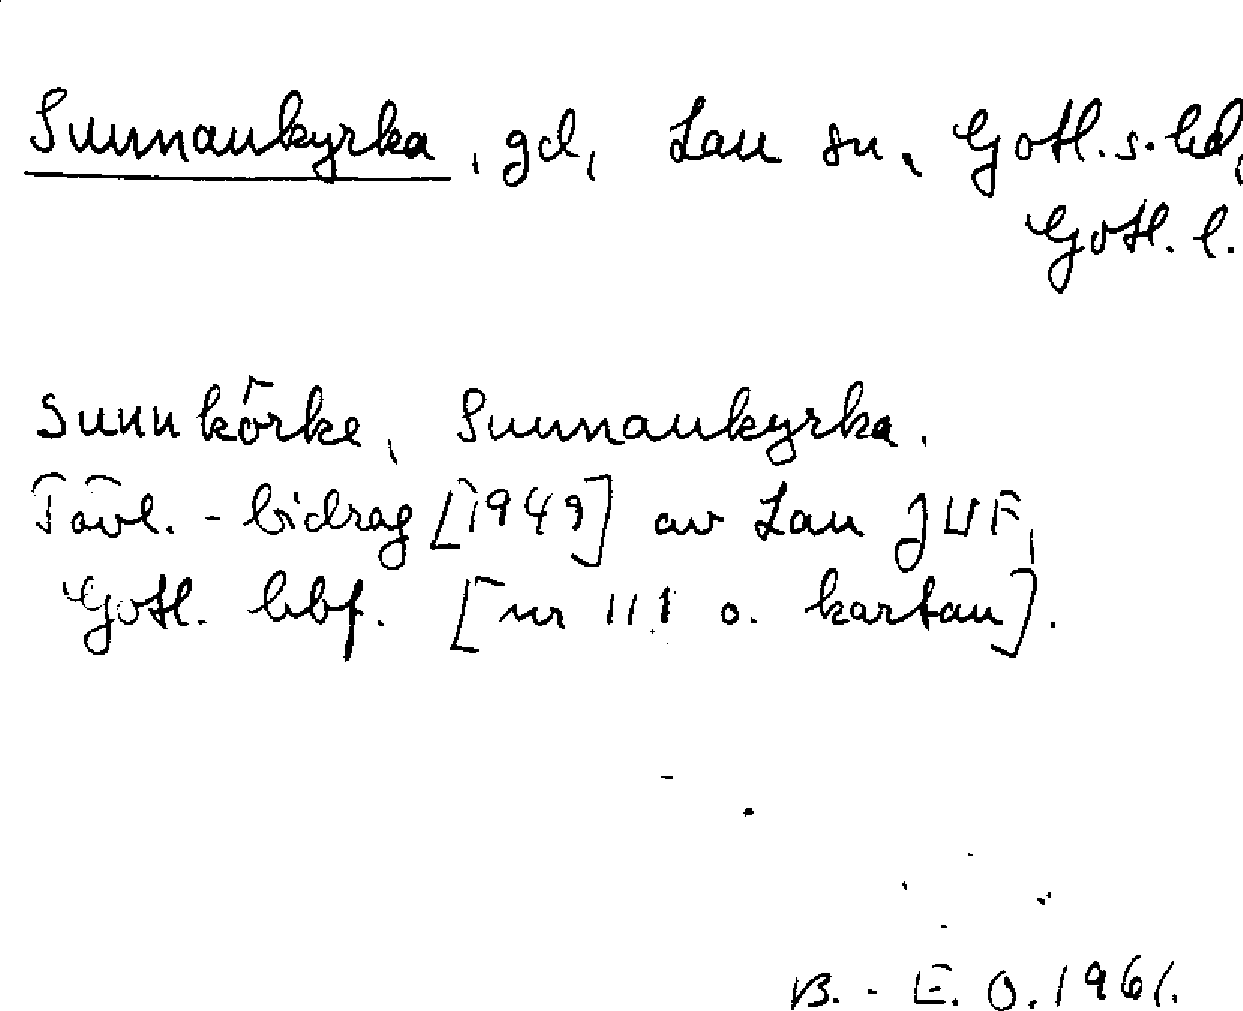 Sunnankyrka, gd, Lau sn, Gotl. s. hd,
Gotl. l.
Sunnkörke, Sunnankyrka.
Tävl.-bidrag [1949] av Lau JUF,
Gotl. bbf. [nr 111 o. kartan].
B.-E. O. 1961.